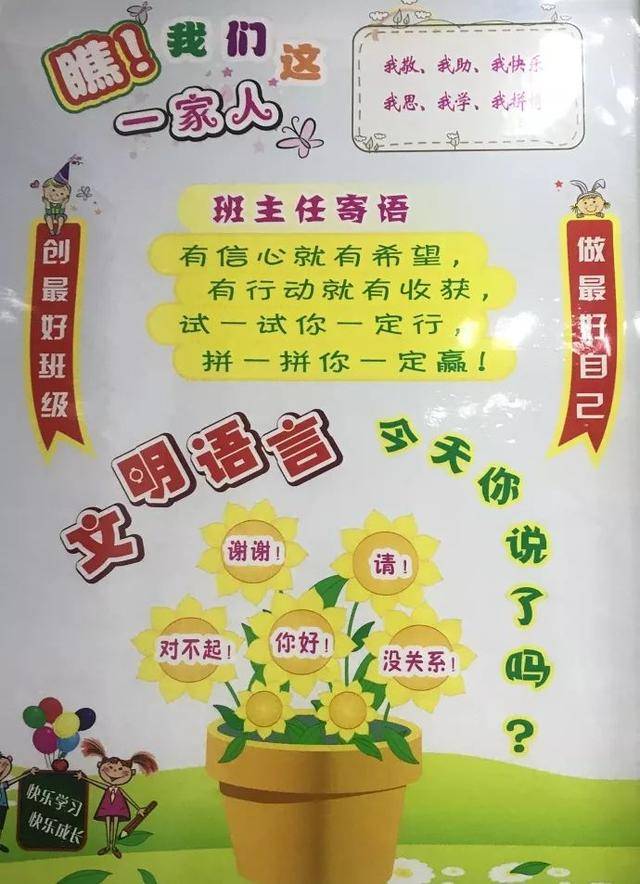 瞧！我们这
一家人
我敬、我助、我快乐
我思、我学、我拼搏
班主任寄语
有信心就有希望，
有行动就有收获，
试一试你一定行，
拼一拼你一定赢！
创最好班级
做最好自己
文明语言
今天你说了吗？
谢谢！
请！
对不起！
你好！
没关系！
快乐学习
快乐成长